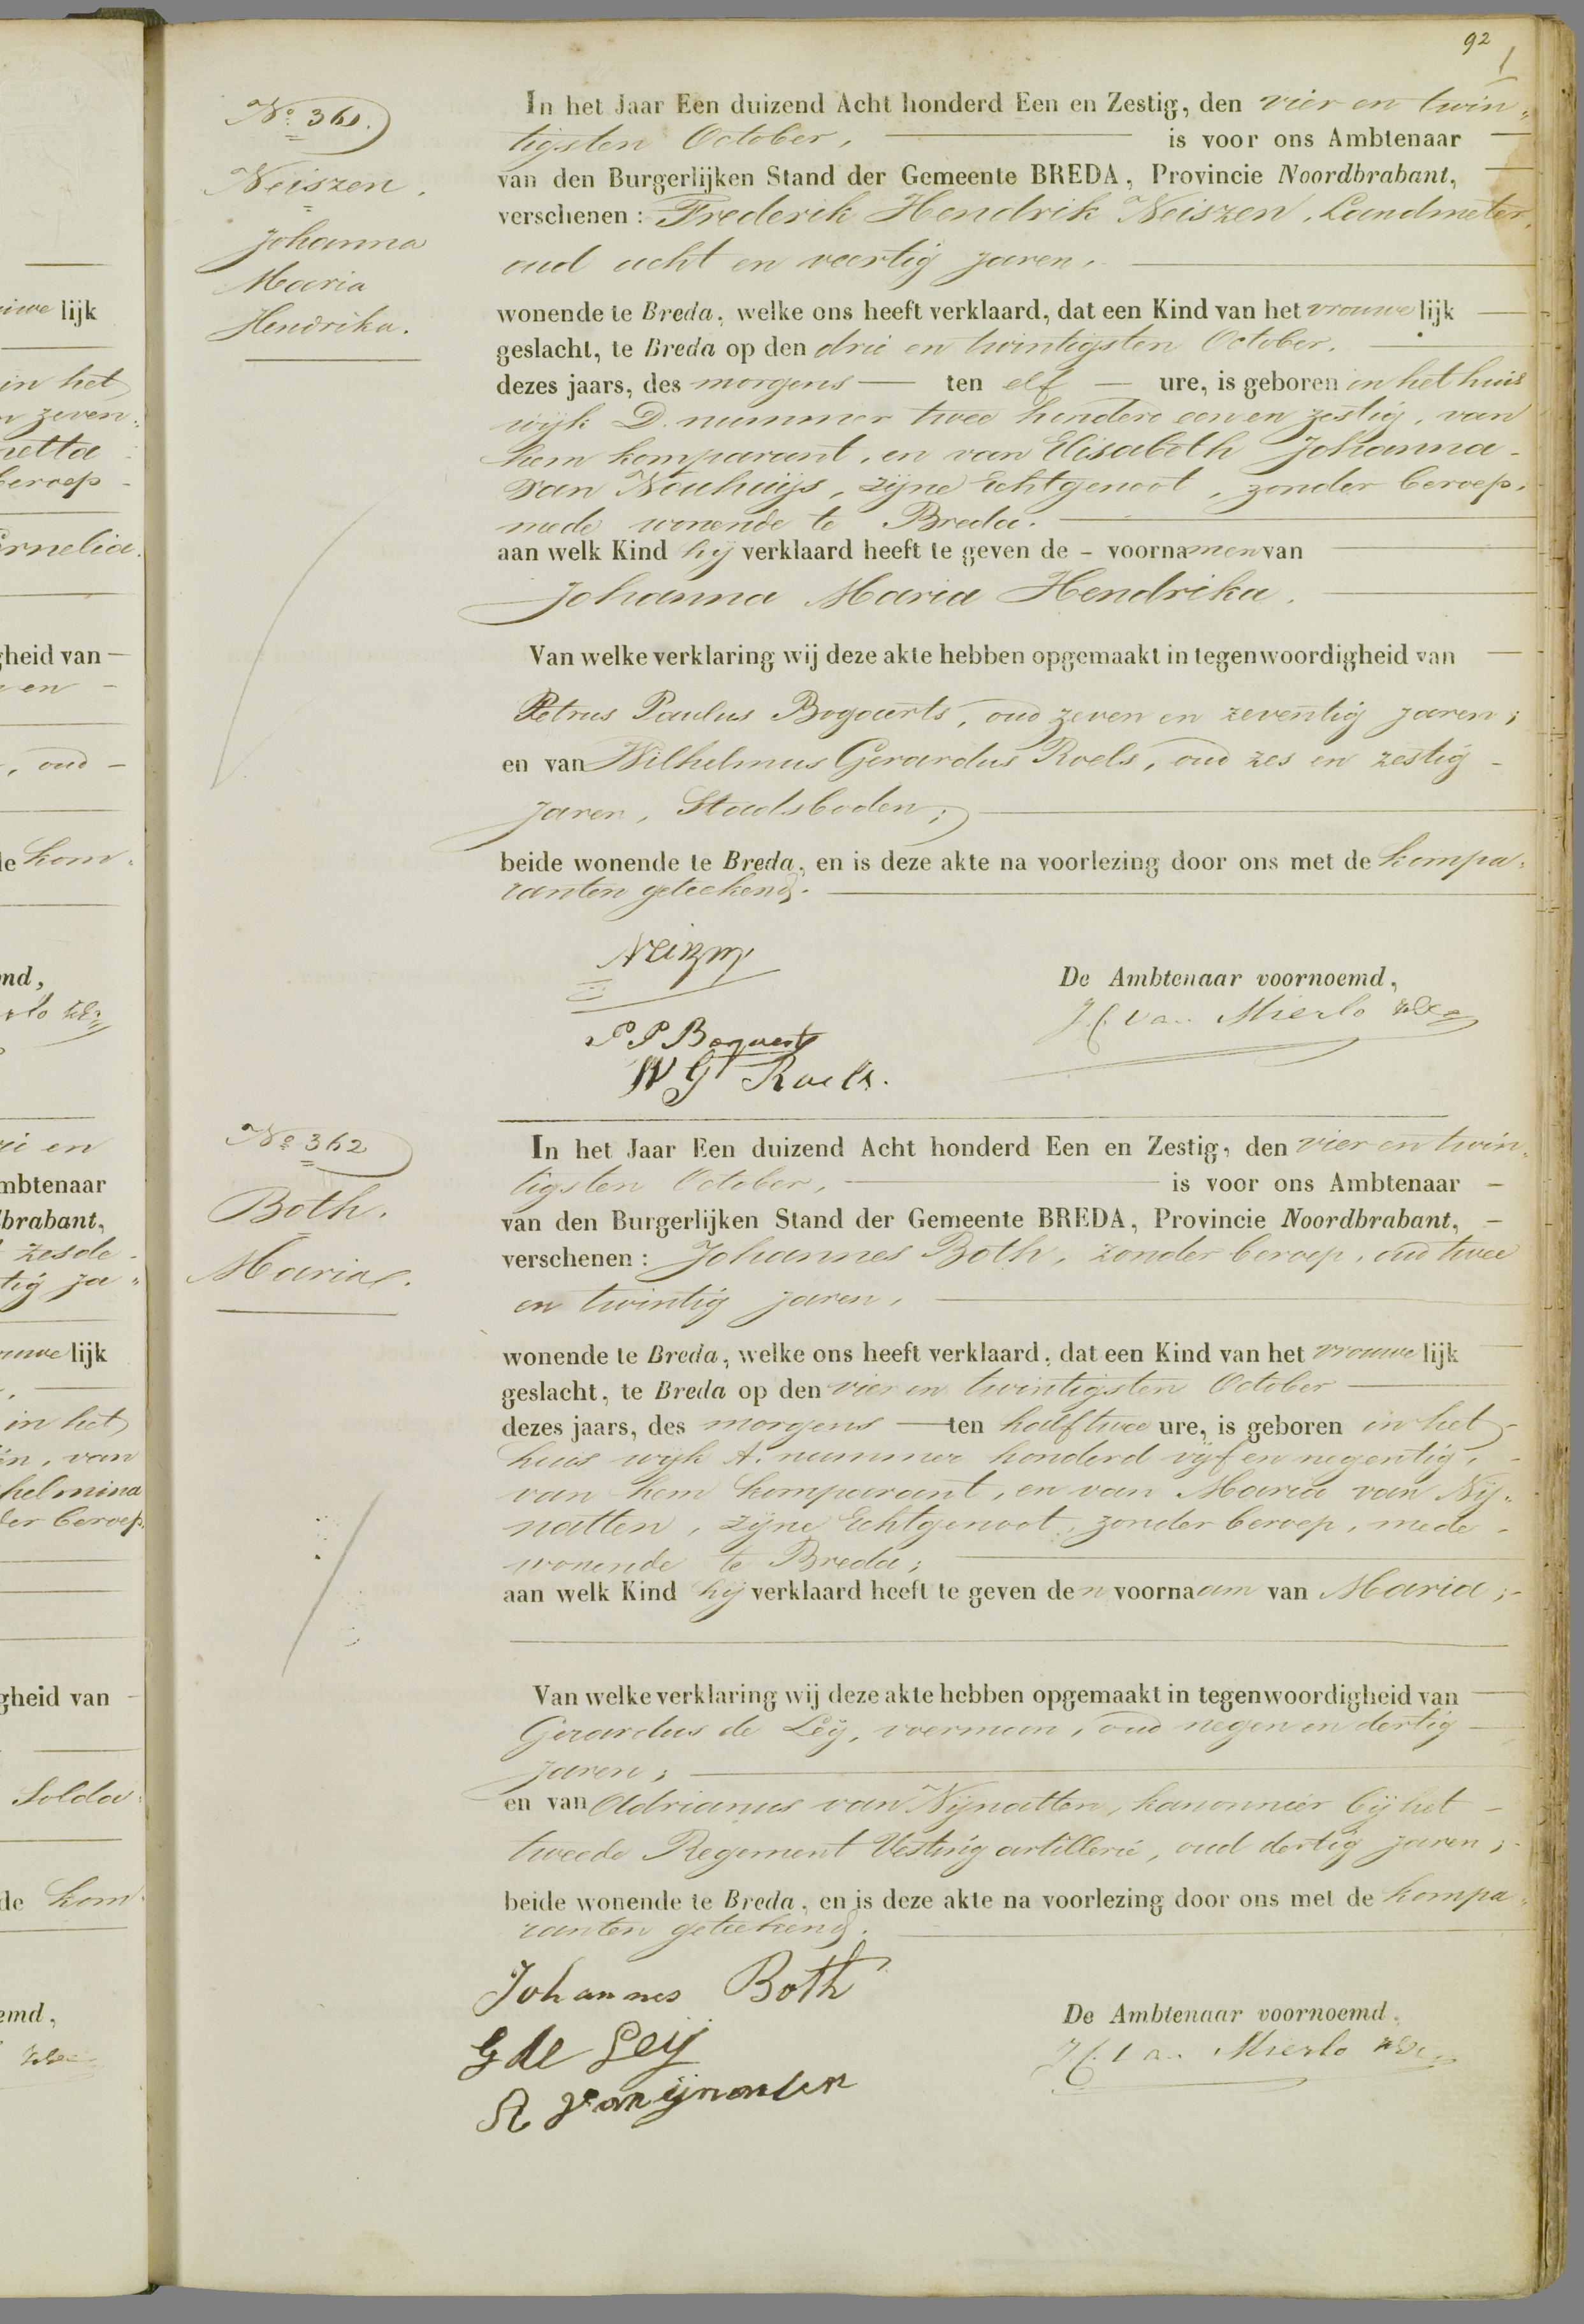 92
1
No 361.
Neiszen.
Johanna
Maria
Hendrika.
In het Jaar Een duizend Acht honderd Een en Zestig, den vier en twin„
tigsten October, is voor ons Ambtenaar
van den Burgerlijken Stand der Gemeente BREDA, Provincie Noordbrabant,
verschenen: Frederik Hendrik Neiszen, Landmeter,
oud acht en veertig jaren,
wonende te Breda, welke ons heeft verklaard, dat een Kind van het vrouwelijk
geslacht, te Breda op den drie en twintigsten October,
dezes jaars, des morgens ten elf ure, is geboren in het huis
wijk D. nummer twee honderd een en zestig, van
hem komparant, en van Elisabeth Johanna
van Nouhuijs, zijne Echtgenoot, zonder beroep,
mede wonende te Breda.
aan welk Kind hij verklaard heeft te geven de - voornamen van
Johanna Maria Hendrika.
Van welke verklaring wij deze akte hebben opgemaakt in tegenwoordigheid van
Petrus Paulus Bogaerts, oud zeven en zeventig jaren;
en van Wilhelmus Gerardus Roels, oud zes en zestig
jaren, Stadsboden;
beide wonende te Breda, en is deze akte na voorlezing door ons met de kompa„
ranten geteekend.
Neiszen
P P Bogaerts
W G Roels.
De Ambtenaar voornoemd,
van Mierlo
No 362
Both.
Maria.
In het Jaar Een duizend Acht honderd Een en Zestig, den vier en twin„
tigsten October, is voor ons Ambtenaar
van den Burgerlijken Stand der Gemeente BREDA, Provincie Noordbrabant,
verschenen: Johannes Both, zonder beroep, oud twee
en twintig jaren,
wonende te Breda, welke ons heeft verklaard, dat een Kind van het vrouwelijk
geslacht, te Breda op den vier en twintigsten October
dezes jaars, des morgens ten half twee ure, is geboren in het
huis wijk A. nummer honderd vijf en negentig,
van hem komparant, en van Maria van Nij„
natten, zijne Echtgenoot, zonder beroep, mede
wonende te Breda;
aan welk Kind hij verklaard heeft te geven den voornaam van Maria;
Van welke verklaring wij deze akte hebben opgemaakt in tegenwoordigheid van
Gerardus de Leij, voerman, oud negen en dertig
jaren;
en van Adrianus van Nijnatten, kanonnier bij het
tweede Regement Vesting artillerie, oud dertig jaren;
beide wonende te Breda, en is deze akte na voorlezing door ons met de kompa„
ranten geteekend.
Johannes Both
G de Leij
De Ambtenaar voornoemd,
van Mierlo